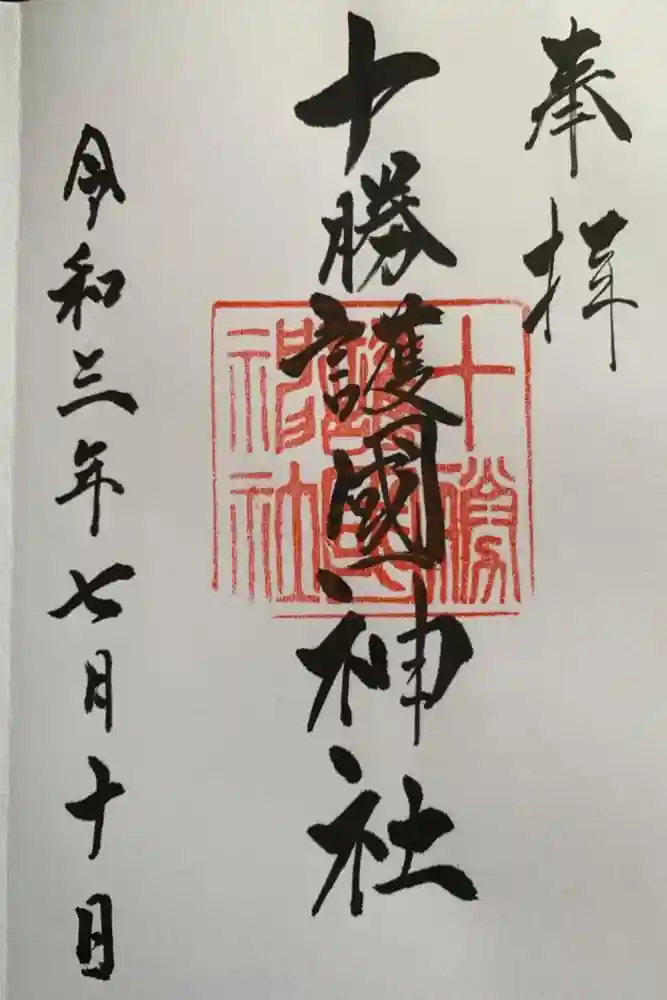 奉拝
十勝護國神社
十勝護國神社
令和三年七月十日